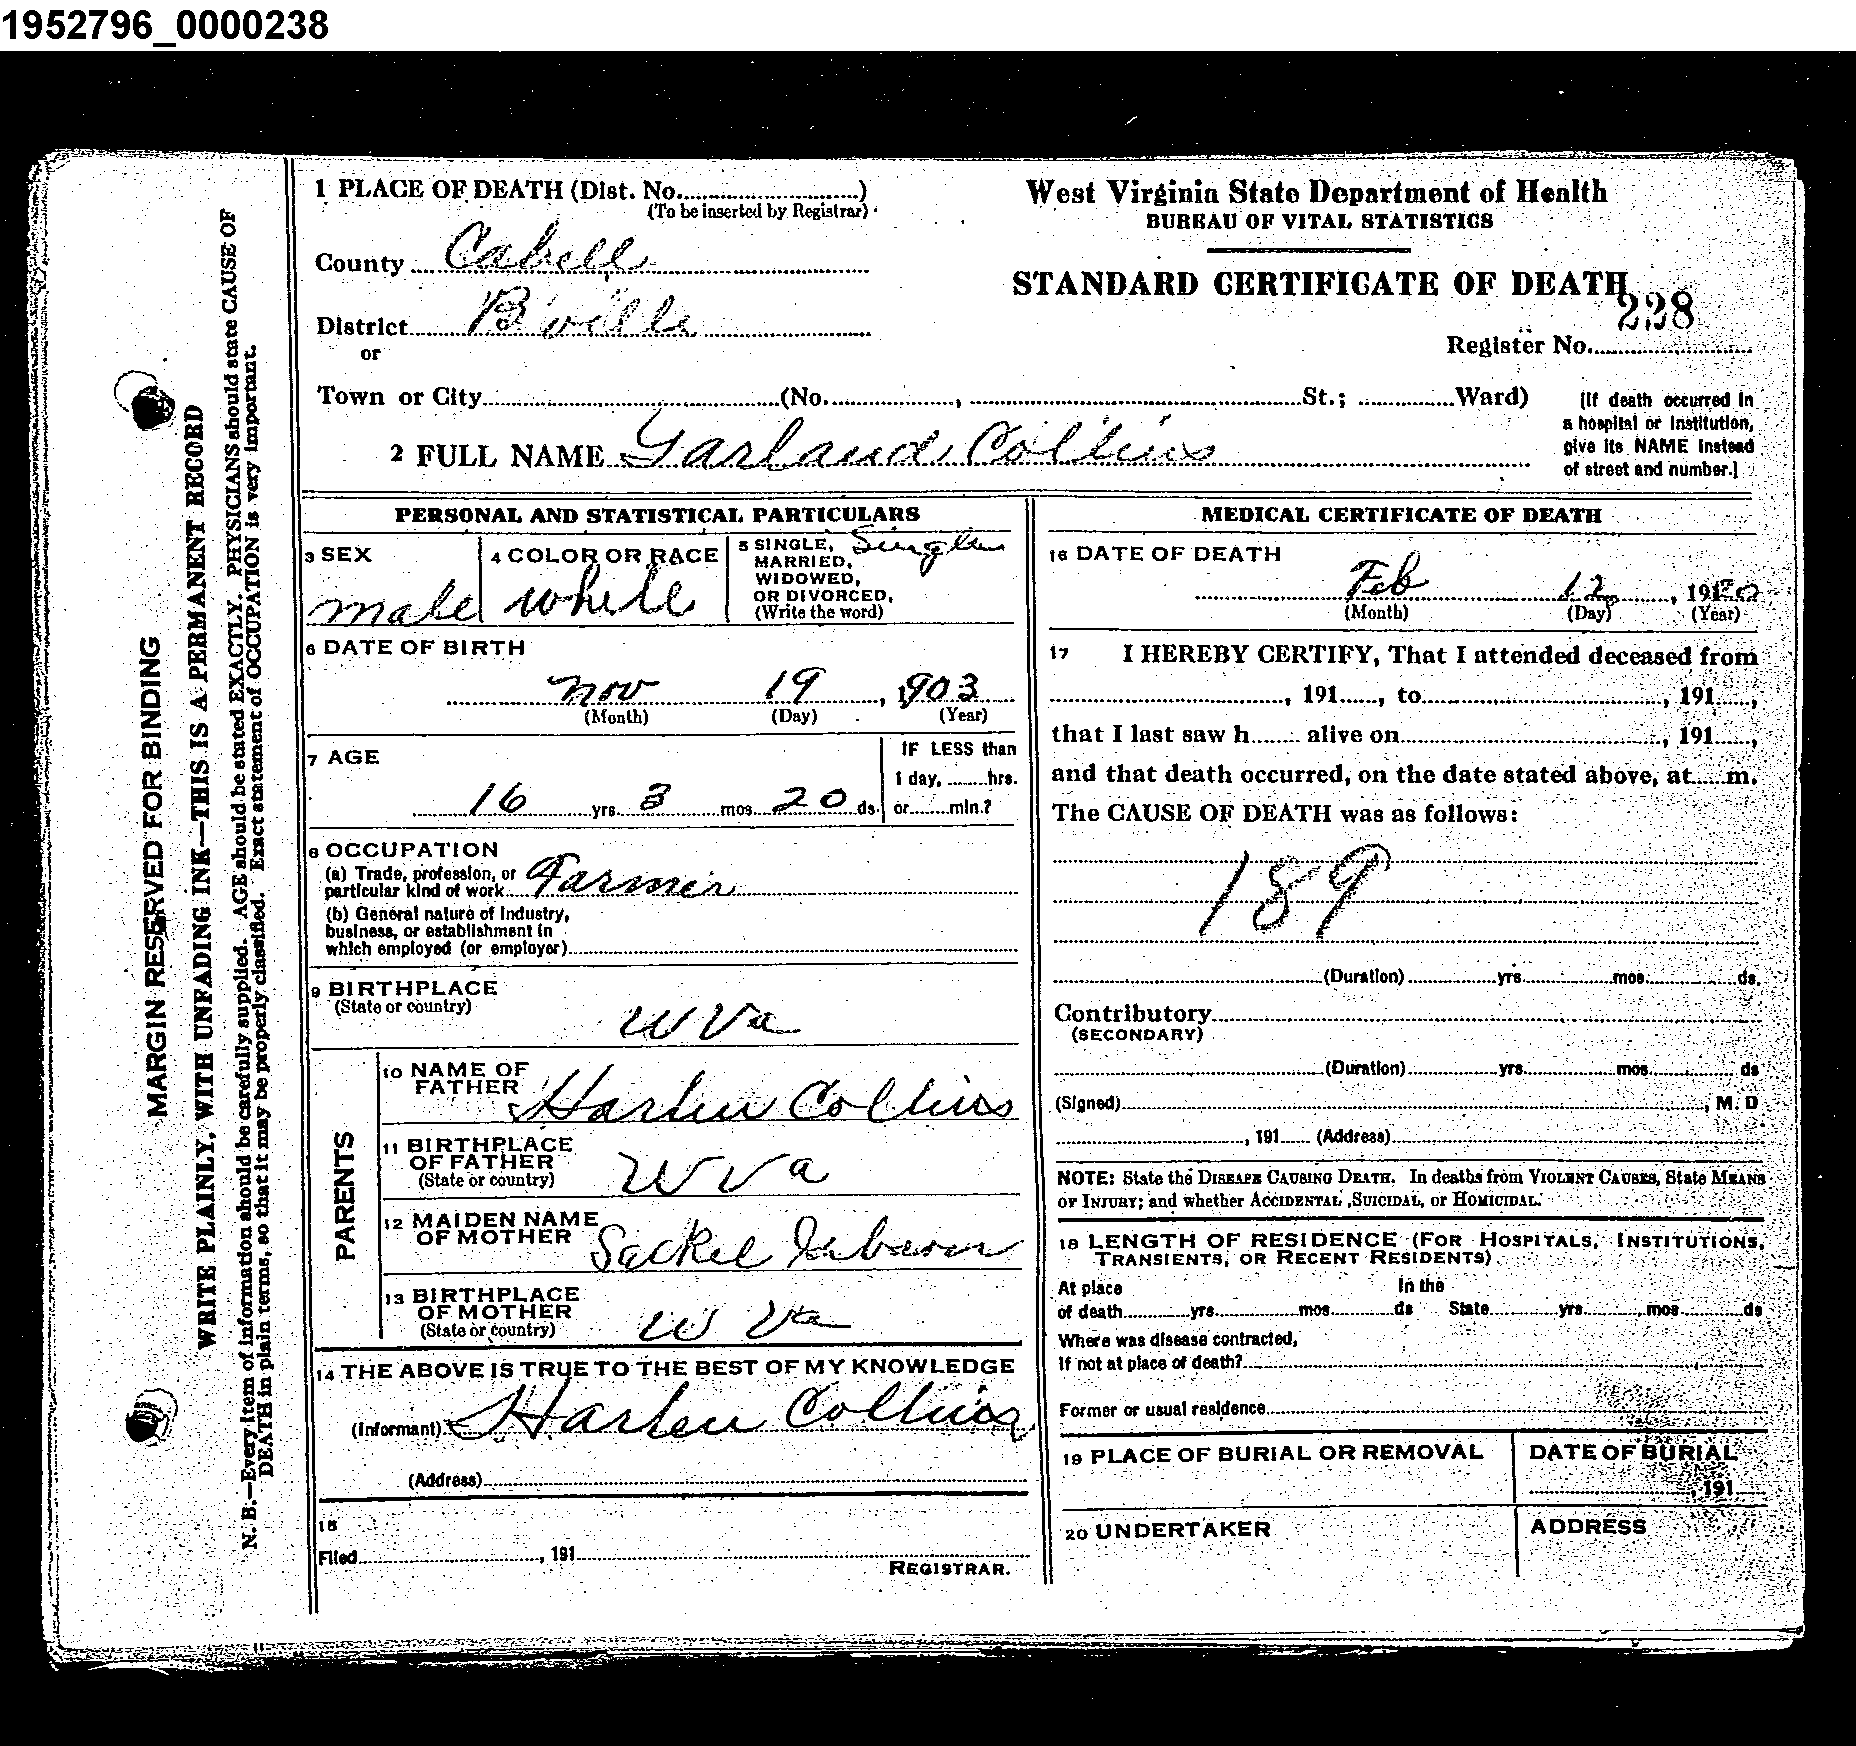 1952796_0000238
1 PLACE OF DEATH (Dist. No..............................)
(To be inserted by Registrar)
County Cabell
District B'ville
or
Town or City..............................(No..............., ..............................St.; ...............Ward)
2 FULL NAME Garland Collins
West Virginia State Department of Health
BUREAU OF VITAL STATISTICS
STANDARD CERTIFICATE OF DEATH
228
Register No...............
[If death occurred in
a hospital or institution,
give its NAME instead
of street and number.]
PERSONAL AND STATISTICAL PARTICULARS
3 SEX
male
4 COLOR OR RACE
white
5 SINGLE, Single
MARRIED,
WIDOWED,
OR DIVORCED,
(Write the word)
6 DATE OF BIRTH
Nov 19, 1903
(Month) (Day) (Year)
7 AGE
16 yrs. 3 mos. 20 ds.
IF LESS than
1 day, ........hrs.
or ........min.?
8 OCCUPATION
(a) Trade, profession, or
particular kind of work Farmer
(b) General nature of Industry,
business, or establishment in
which employed (or employer)..............................
9 BIRTHPLACE
(State or country)
W Va
PARENTS
10 NAME OF
FATHER Harlen Collins
11 BIRTHPLACE
OF FATHER
(State or country) W Va
12 MAIDEN NAME
OF MOTHER
13 BIRTHPLACE
OF MOTHER
(State or country) W Va
14 THE ABOVE IS TRUE TO THE BEST OF MY KNOWLEDGE
(Informant) Harlen Collins
(Address)..............................
15
Filed.............................., 191..............................
REGISTRAR.
MEDICAL CERTIFICATE OF DEATH
16 DATE OF DEATH
Feb 12, 1920
(Month) (Day) (Year)
17 I HEREBY CERTIFY, That I attended deceased from
.............................., 191......, to.............................., 191......,
that I last saw h........ alive on.............................., 191......,
and that death occurred, on the date stated above, at.....m.
The CAUSE OF DEATH was as follows:
189
..............................(Duration)...............yrs...............mos...............ds.
Contributory..............................
(SECONDARY)
..............................(Duration)...............yrs...............mos...............ds
(Signed).............................., M. D
.............................., 191...... (Address)..............................
NOTE: State the DISEASE CAUSING DEATH. In deaths from VIOLENT CAUSES, State MEANS
OF INJURY; and whether ACCIDENTAL ,SUICIDAL, or HOMICIDAL.
18 LENGTH OF RESIDENCE (FOR HOSPITALS, INSTITUTIONS,
TRANSIENTS, OR RECENT RESIDENTS)
At place In the
of death...............yrs...............mos...............ds State...............yrs...............mos...............ds
Where was disease contracted,
If not at place of death?..............................
Former or usual residence..............................
19 PLACE OF BURIAL OR REMOVAL
DATE OF BURIAL
.............................., 191......
20 UNDERTAKER
ADDRESS
MARGIN RESERVED FOR BINDING
WRITE PLAINLY, WITH UNFADING INK—THIS IS A PERMANENT RECORD
N. B.—Every item of information should be carefully supplied. AGE should be stated EXACTLY. PHYSICIANS should state CAUSE OF
DEATH in plain terms, so that it may be properly classified. Exact statement of OCCUPATION is very important.